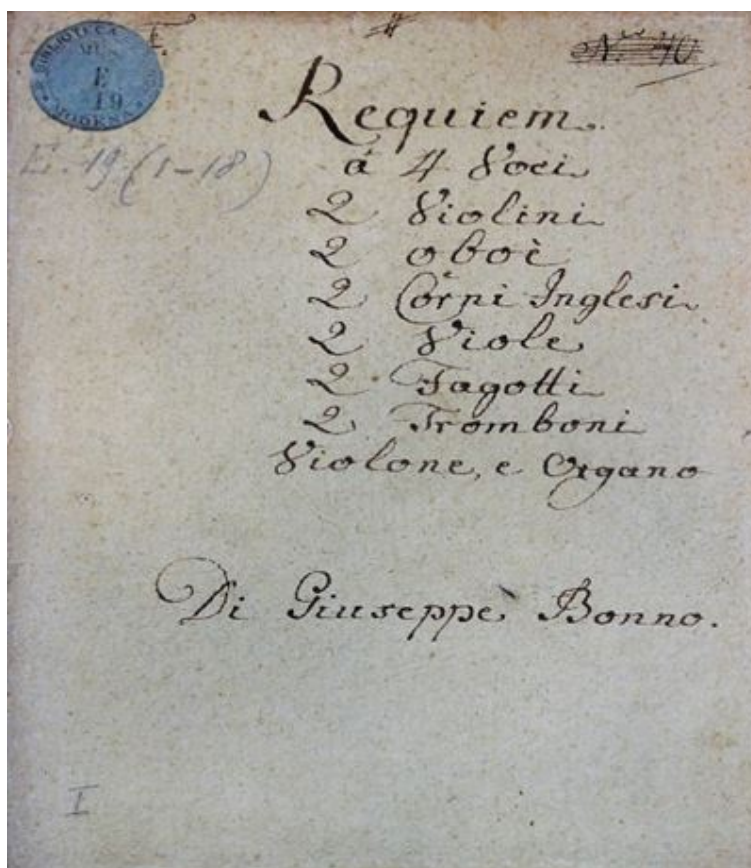 BIBLIOTECA
MUS
E
19
MODENA
E.
Nº 40
E. 19 (1-18)
Requiem.
á 4 Voci
2 Violini
2 oboè
2 Corni Inglesi
2 Viole
2 Fagotti
2 Tromboni
Violone, e Organo
Di Giuseppe Bonno.
I